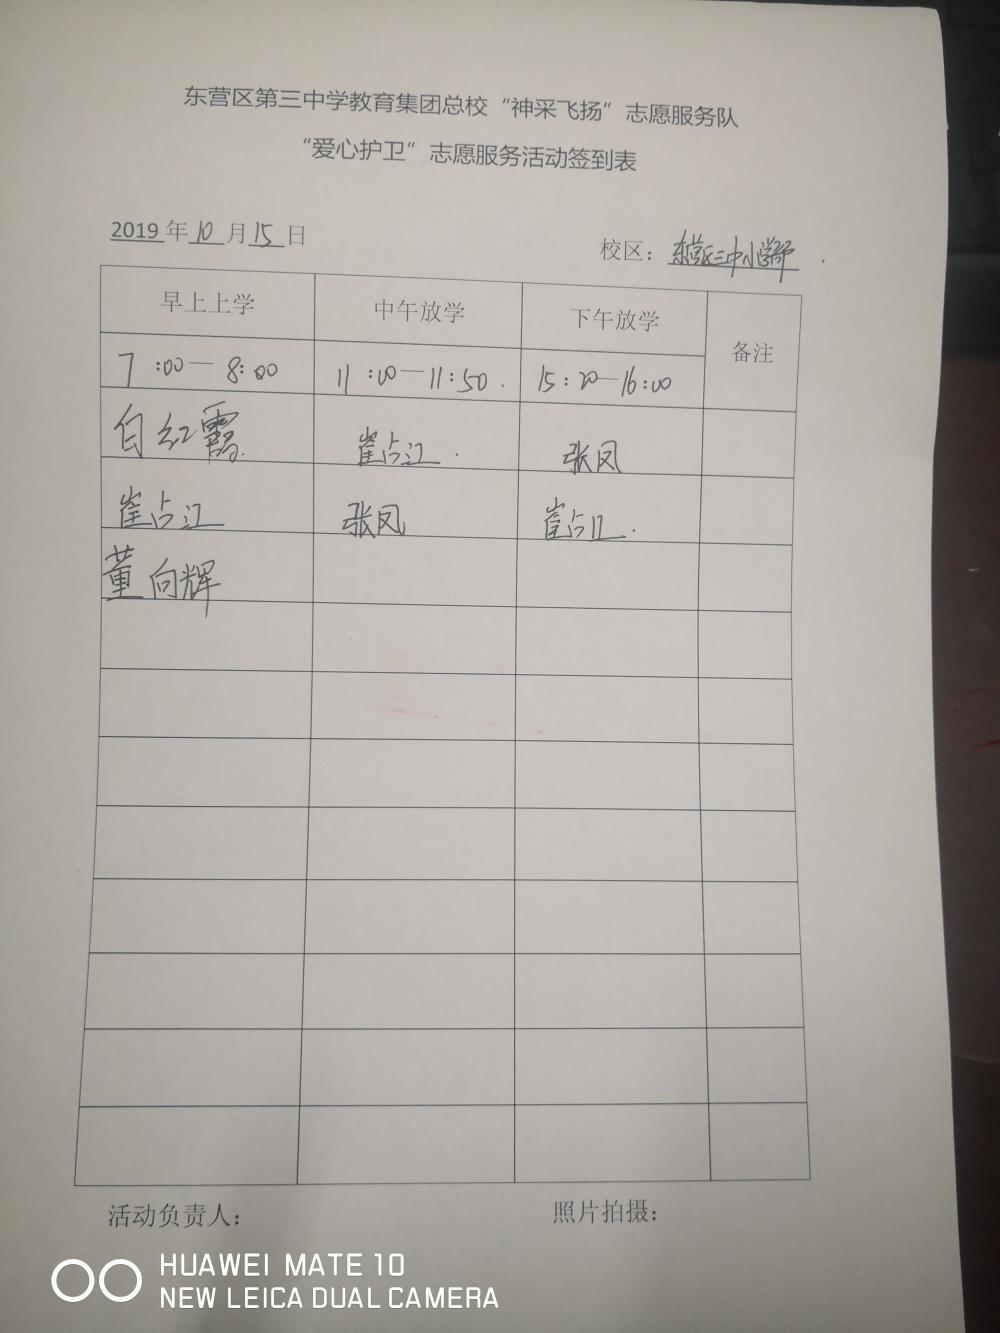 东营区第三中学教育集团总校“神采飞扬”志愿服务队
“爱心护卫”志愿服务活动签到表
2019年10月15日 校区：东营区三中小学部
早上上学 中午放学 下午放学 备注
7:00—8:00 11:00—11:50. 15:20—16:00
白红霞 崔占江. 张凤
崔占江 张凤 崔占江.
董向辉
活动负责人： 照片拍摄：
HUAWEI MATE 10
NEW LEICA DUAL CAMERA